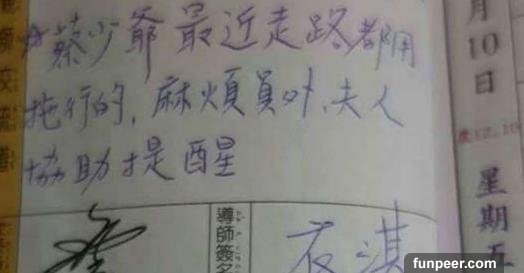 ☆蔡少爺最近走路都用
拖行的，麻煩員外、夫人
協助提醒
導師簽名
衣淇
月10日
星期五
funpeer.com